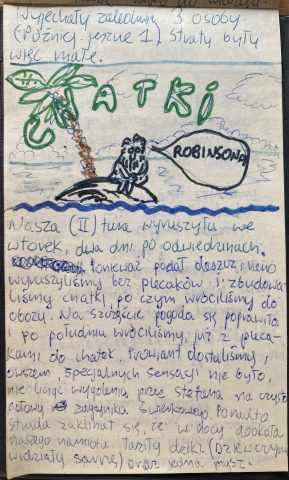 Wyjechały zaledwie 3 osoby.
(Później jeszcze 1). Straty były
więc małe.
CHATKI
ROBINSONA
Nasza (II) tura wyruszyła we
wtorek, dwa dni po odwiedzinach.
Ponieważ padał deszcz, rano
wyruszyliśmy bez plecaków i zbudowa-
liśmy chatki, po czym wróciliśmy do
obozu. Na szczęście pogoda się poprawiła
i po południu wróciliśmy, już z pleca-
kami do chatek. Prowiant dostaliśmy i
owszem. Specjalnych sensacji nie było,
nie licząc przez Stefana na
zagajnika świerkowego. Ponadto
zaklinał się, że w nocy dookoła
naszego namiotu łaziły dziki (Dziewczyny
widziały sarnę) oraz jedna mysz.